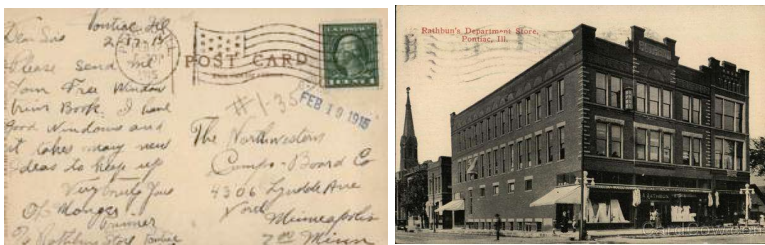 Pontiac, Ill
2/17-15
Dear Sirs
Please send me
your Free Window
trims Book. I have
good windows and
it takes many new
ideas to keep up
Very truly Yours
Trimmer
Rathbuns Store, Pontiac
POST CARD
U.S. POSTAGE
1 CENT 1
#1-35
FEB 19 1915
The Northwestern
Compo-Board Co
4306 Lyndale Ave
Nord
Minneapolis
Minn
Rathbun's Department Store,
Pontiac, Ill.
CardCow.com